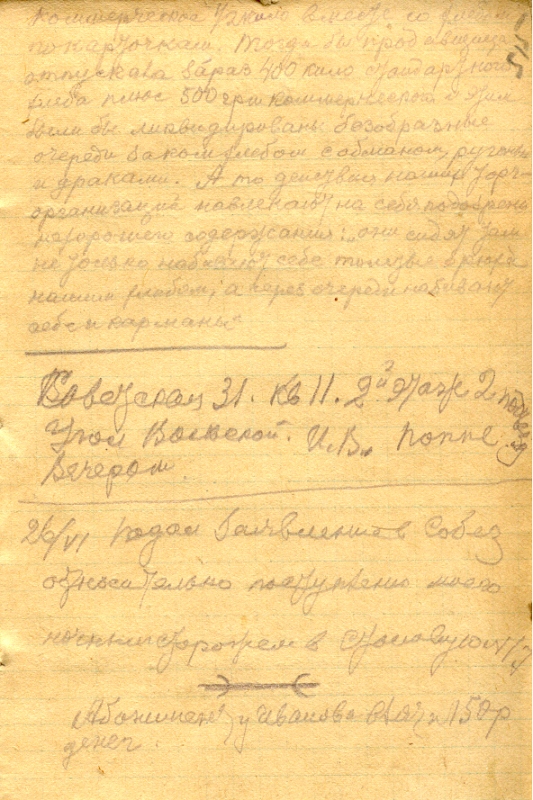 коммерческое 1/2 кило вместе со хлебом
по карточкам. Тогда бы прод
отпускала зараз 400 кило стандартного
хлеба плюс 500 грм коммерческого и этим
были бы ликвидированы безобразные
очереди за ком хлебом с обманом, руганью
и драками. А то действия наших торг-
организаций навлекают на себя подозрен
нехорошего содержания: „они сидят там
не только набивают себе толстые брюха
нашим хлебом, а через очереди набивают
себе и карманы"
Советская 31. кв 11. 2й этаж 2 подъезд
Угол Вольской. И.В. Поппе.
Вечером
26/VI Подал заявление в Собез
относительно поступлению моего
ночным сторожем в столовую
Абонимент у Иванова взят и 150 р
денег.